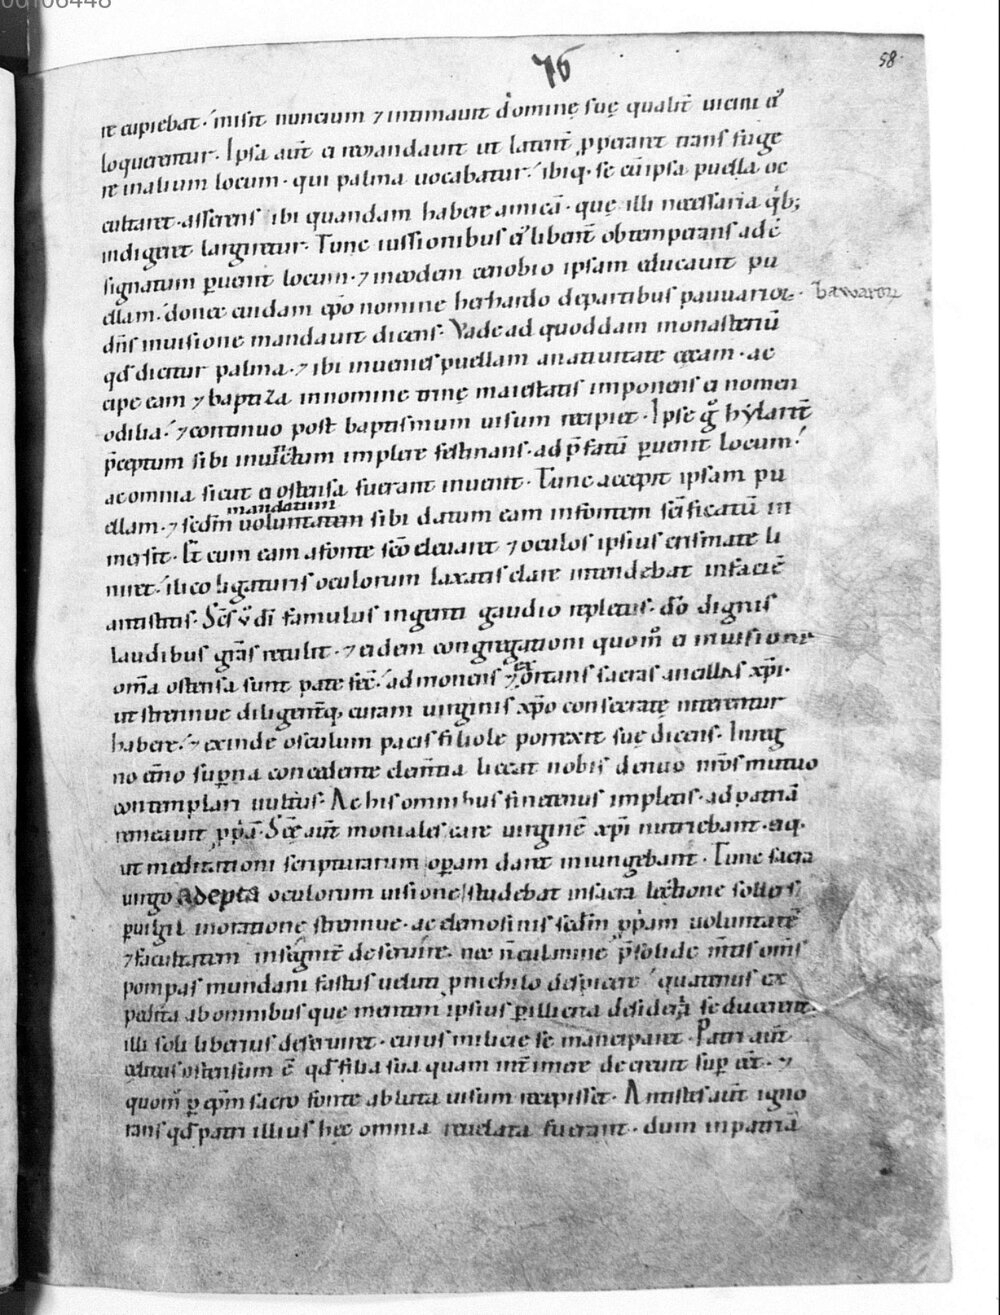 00106448
76
58.
re cupiebat. misit nuncium ⁊ intimauit dominę suę qualit̄ uicini ei᾽
loquerentur. Ipsa aut̄ ei remandauit ut latent̄ ꝓperaret trans fuge
re inalium locum. qui palma uocabatur. ibiq. se cū ipsa puella oc
cultaret. asserens ibi quandam habere amicā. que illi necessaria qb;
indigeret largiretur. Tunc iussionibus ei᾽ libent̄ obtemperans adde
signatum ꝑuenit locum. ⁊ ineodem cenobio ipsam educauit pu
ellam. donec cuidam ep̄o nomine herhardo departibus pauuarior. Bawaror
dn̄s inuisione mandauit dicens. Vade ad quoddam monasteriū
qd̄ dicitur palma. ⁊ ibi inuenies puellam anatiuitate cęcam. ac
cipe eam ⁊ baptiza innomine trinę maiestatis imponens ei nomen
odilia. ⁊ continuo post baptismum uisum recipiet. Ipse g̊ hylarit̄
p̄ceptum sibi iniunctum implere festinans. ad p̄fatū ꝑuenit locum.
ac omnia sicut ei ostensa fuerant inuenit. Tunc accepit ipsam pu
mandatum
ellam. ⁊ sedm̄ uoluntatem sibi datum eam infontem sc̄ificatū in
mersit. Et cum eam afonte sc̄o eleuaret ⁊ oculos ipsius crismate li
niret. ilico ligaturis oculorum laxatis clare intendebat infaciē
antistitis. Sc̄s v̊ dī famulus ingenti gaudio repletus. dō dignis
laudibus grās retulit. ⁊ eidem congregationi quom̊ ei inuisione
om̄a ostensa sunt pate fec̄. admonens ⁊ exortans sacras ancillas xp̄i.
ut strennue diligent̄q. curam uirginis xp̄o consecratę niterentur
habere. ⁊ exinde osculum pacis filiole porrexit suę dicens. Inreg
no et̄no superna concedente clem̄tia liceat nobis denuo nr̄os mutuo
contemplari uultus. Ac his omnibus finetenus impletis. ad patriā
remeauit ꝓpͥā. Sc̄ę aut̄ moniales care uirginē xp̄i nutriebant. eiq.
ut meditationi scripturarum operam daret iniungebant. Tunc sacra
uirgo adepta oculorum uisione studebat insacra lectione sollers.
ꝑuigil inoratione strennue. ac elemosinis sedm̄ ꝓpͥam uoluntatē
⁊ facultatem insignit̄ deseruire. nec n̄ culmine p̄ solide m̄tis om̄s
pompas mundani fastus ueluti ꝓnichilo despicere quatenus ex
polita ab omnibus que mentem ipsius ꝑ illicita desideria seducerent.
illi soli liberius deseruiret. cuius milicie se manciparat. Patri aut̄
celitus ostensum ē qd̄ filia sua quam int̄imere decreuit sup̄ eet. ⁊
quom̊ ꝑ ep̄m sacro fonte abluta uisum recepisset. Antistes aut̄ igno
rans qd̄ patri illius hec omnia reuelata fuerant. dum inpatriā